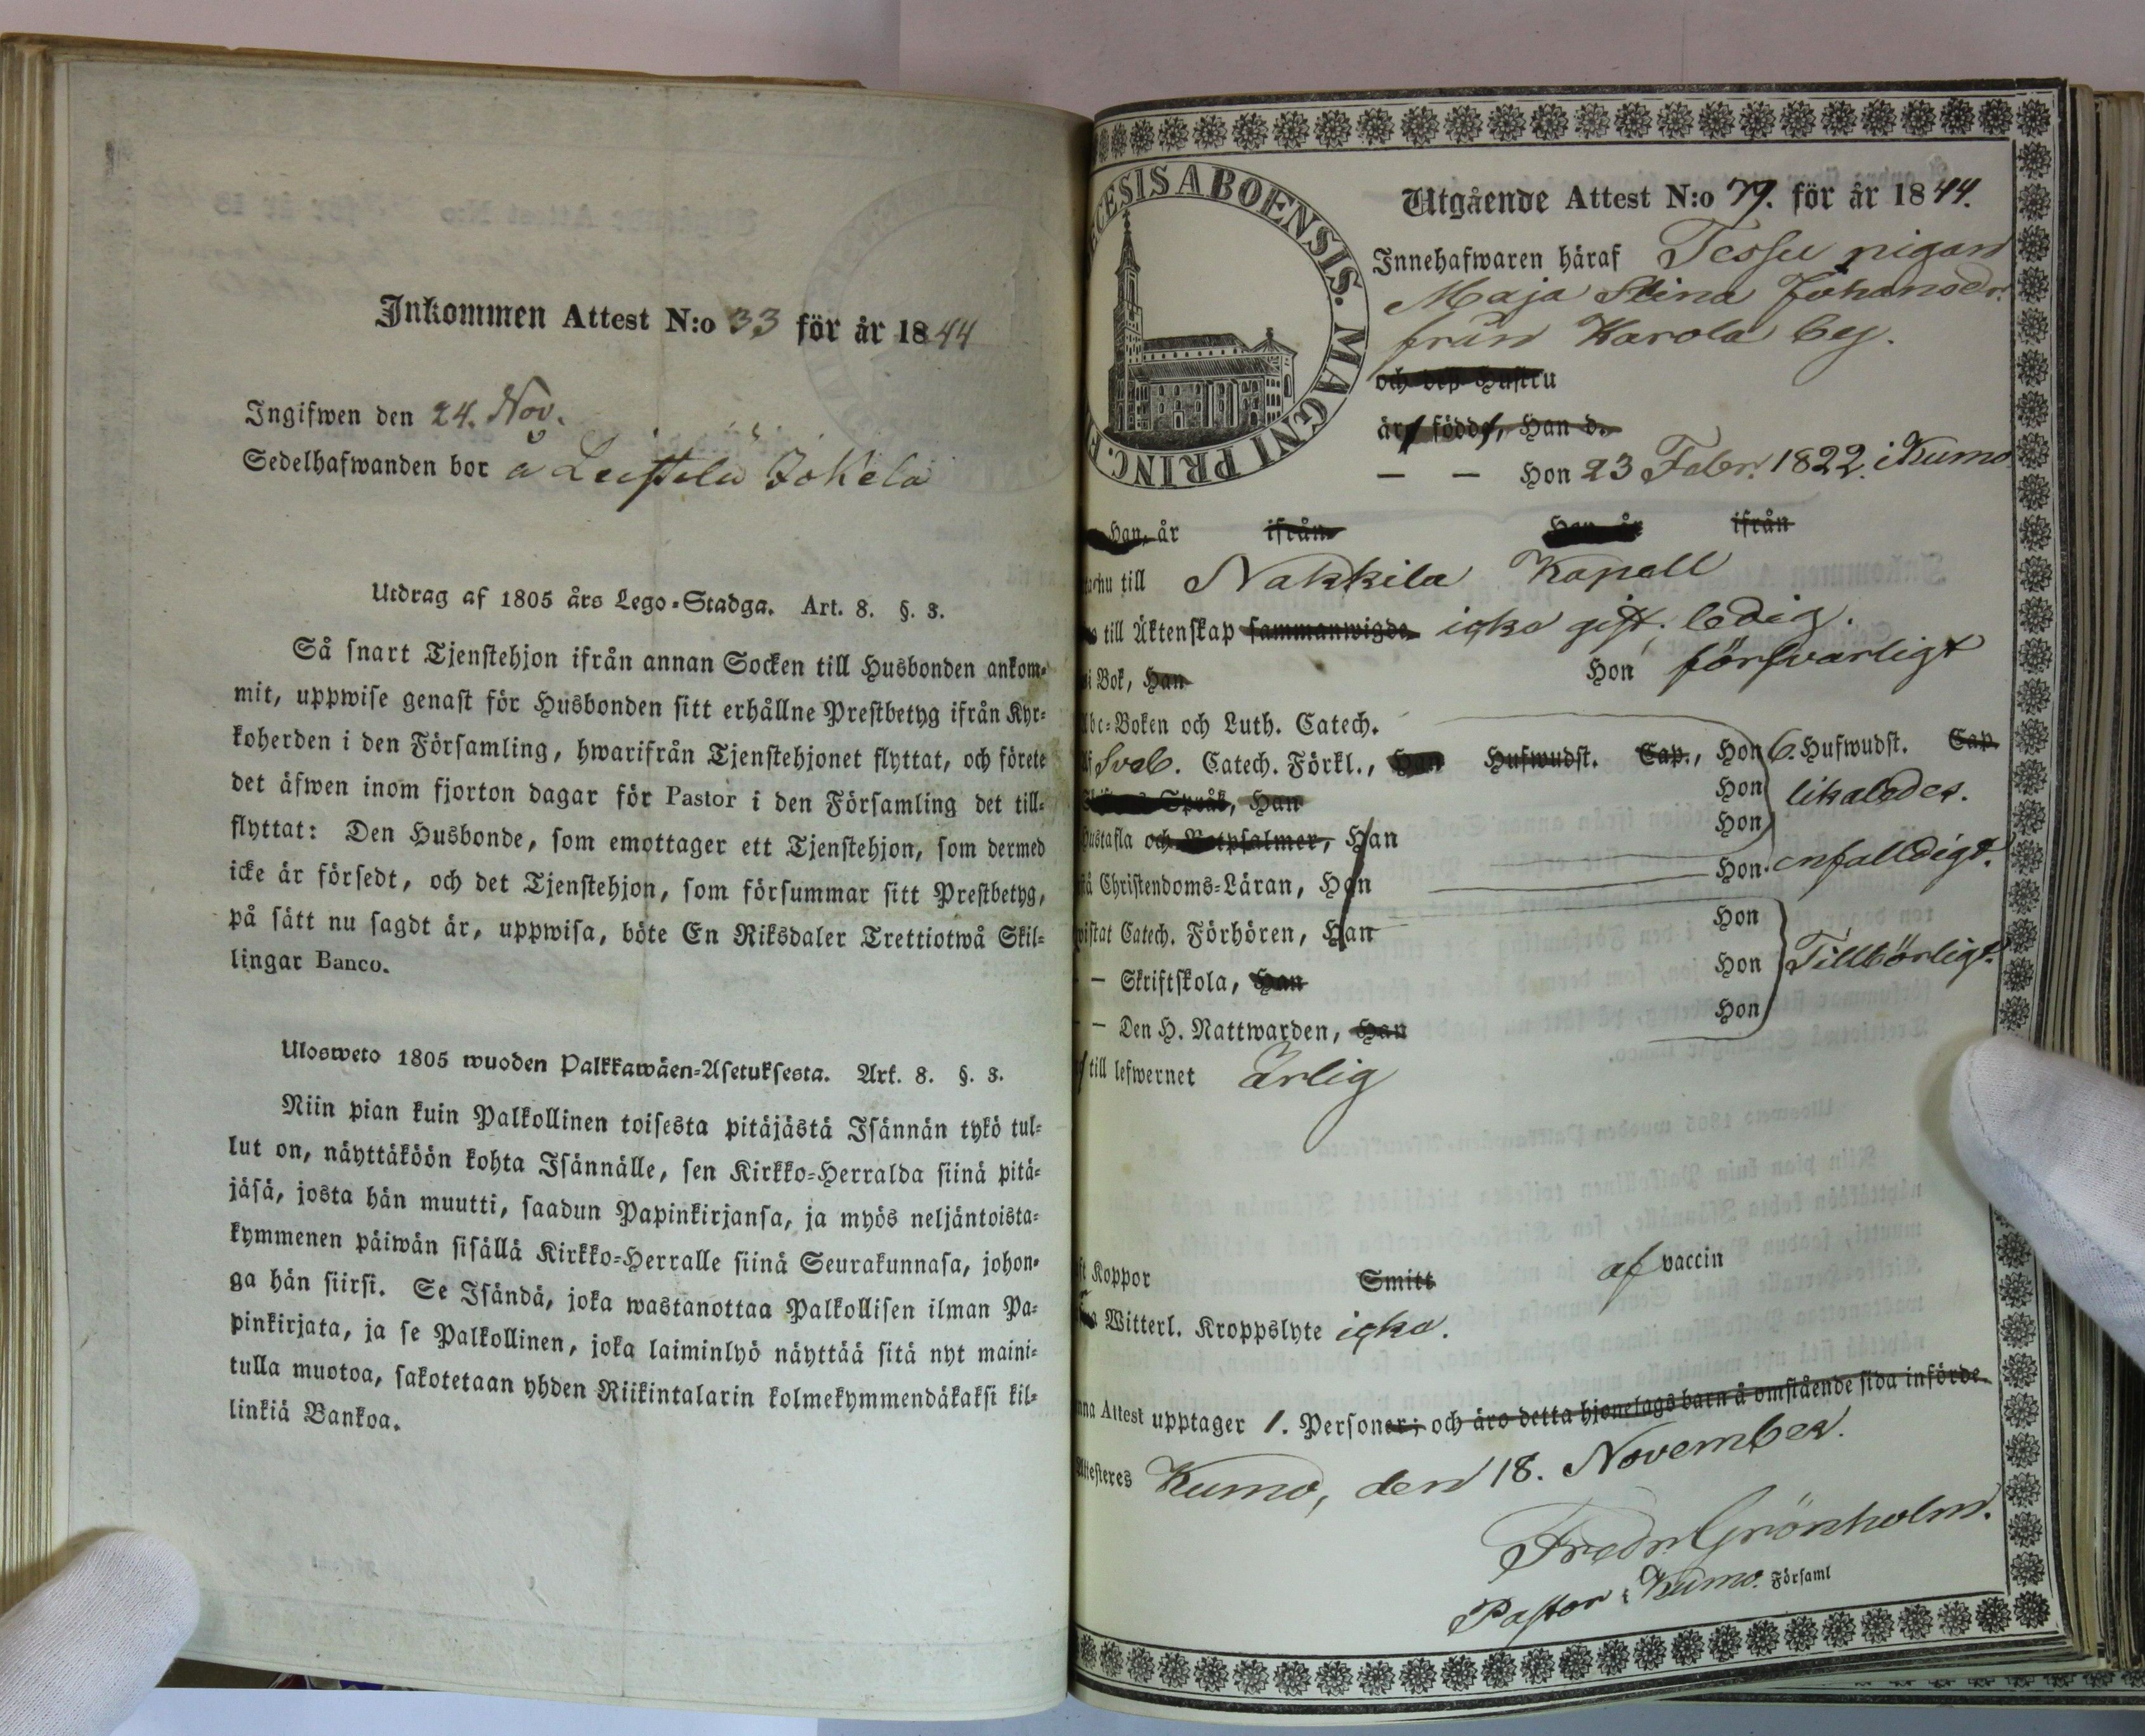 Inkommen Attest N:o 33 för år 1844
Ingifwen den 24. Nov.
Sedelhafwanden bor å Leistila Jokela
Utdrag af 1805 års Lego-Stadga. Art. 8. §. 3.
Så snart Tjenstehjon ifrån annan Socken till Husbonden ankom-
mit, uppwise genast för Husbonden sitt erhållne Prestbetyg ifrån Kyr-
koherden i den Församling, hwarifrån Tjenstehjonet flyttat, och förete
det äfwen inom fjorton dagar för Pastor i den Församling det till-
flyttat: Den Husbonde, som emottager ett Tjenstehjon, som dermed
icke är försedt, och det Tjenstehjon, som försummar sitt Prestbetyg,
på sätt nu sagdt är, uppwisa, böte En Riksdaler Trettiotwå Skil-
lingar Banco.
Ulosweto 1805 wuoden Palkkawäen-Asetuksesta. Art. 8. §. 3.
Niin pian kuin Palkollinen toisesta pitäjästä Isännän tykö tul-
lut on, näyttäköön kohta Isännälle, sen Kirkko-Herralda siinä pitä-
jäsä, josta hän muutti, saadun Papinkirjansa, ja myös neljäntoista-
kymmenen päiwän sisällä Kirkko-Herralle siinä Seurakunnasa, johon-
ga hän siirsi. Se Isändä, joka wastanottaa Palkollisen ilman Pa-
pinkirjata, ja se Palkollinen, joka laiminlyö näyttää sitä nyt maini-
tulla muotoa, sakotetaan yhden Riikintalarin kolmekymmendäkaksi kil-
linkiä Bankoa.
CESIS ABOENSIS. MAGNI PRINC. F
Utgående Attest N:o 79. för år 1844.
Innehafwaren häraf pigan
Maja Stina Johansdr.
från Karola by.
och deß Hustru
är födde, Han d.
— — Hon 23 Febr. 1822. i Kumo
Han, år ifrån Hon år ifrån
nu till Nakkila Kapell
till Äktenskap sammanwigde icke gift, ledig.
i Bok, Han Hon försvarligt
Abc-Boken och Luth. Catech.
Sveb. Catech. Förkl., Han Hufwudst. Cap., Hon 6. Hufwudst. Cap.
Språk, Han Hon likaledes.
Hustafla och Botpsalmer, Han Hon
Christendoms-Läran, Han Hon enfalldigt.
wistat Catech. Förhören, Han Hon
— Skriftskola, Han Hon Tillbörligt.
— Den H. Nattwarden, Han Hon
till lefwernet ärlig
Koppor Smitt af vaccin
Witterl. Kroppslyte icke.
nna Attest upptager 1. Personer; och äro detta hjonelags barn å omstående sida införde.
Attesteres Kumo, den 18. November.
Fredr. Grönholm.
Pastor i Kumo. Församl